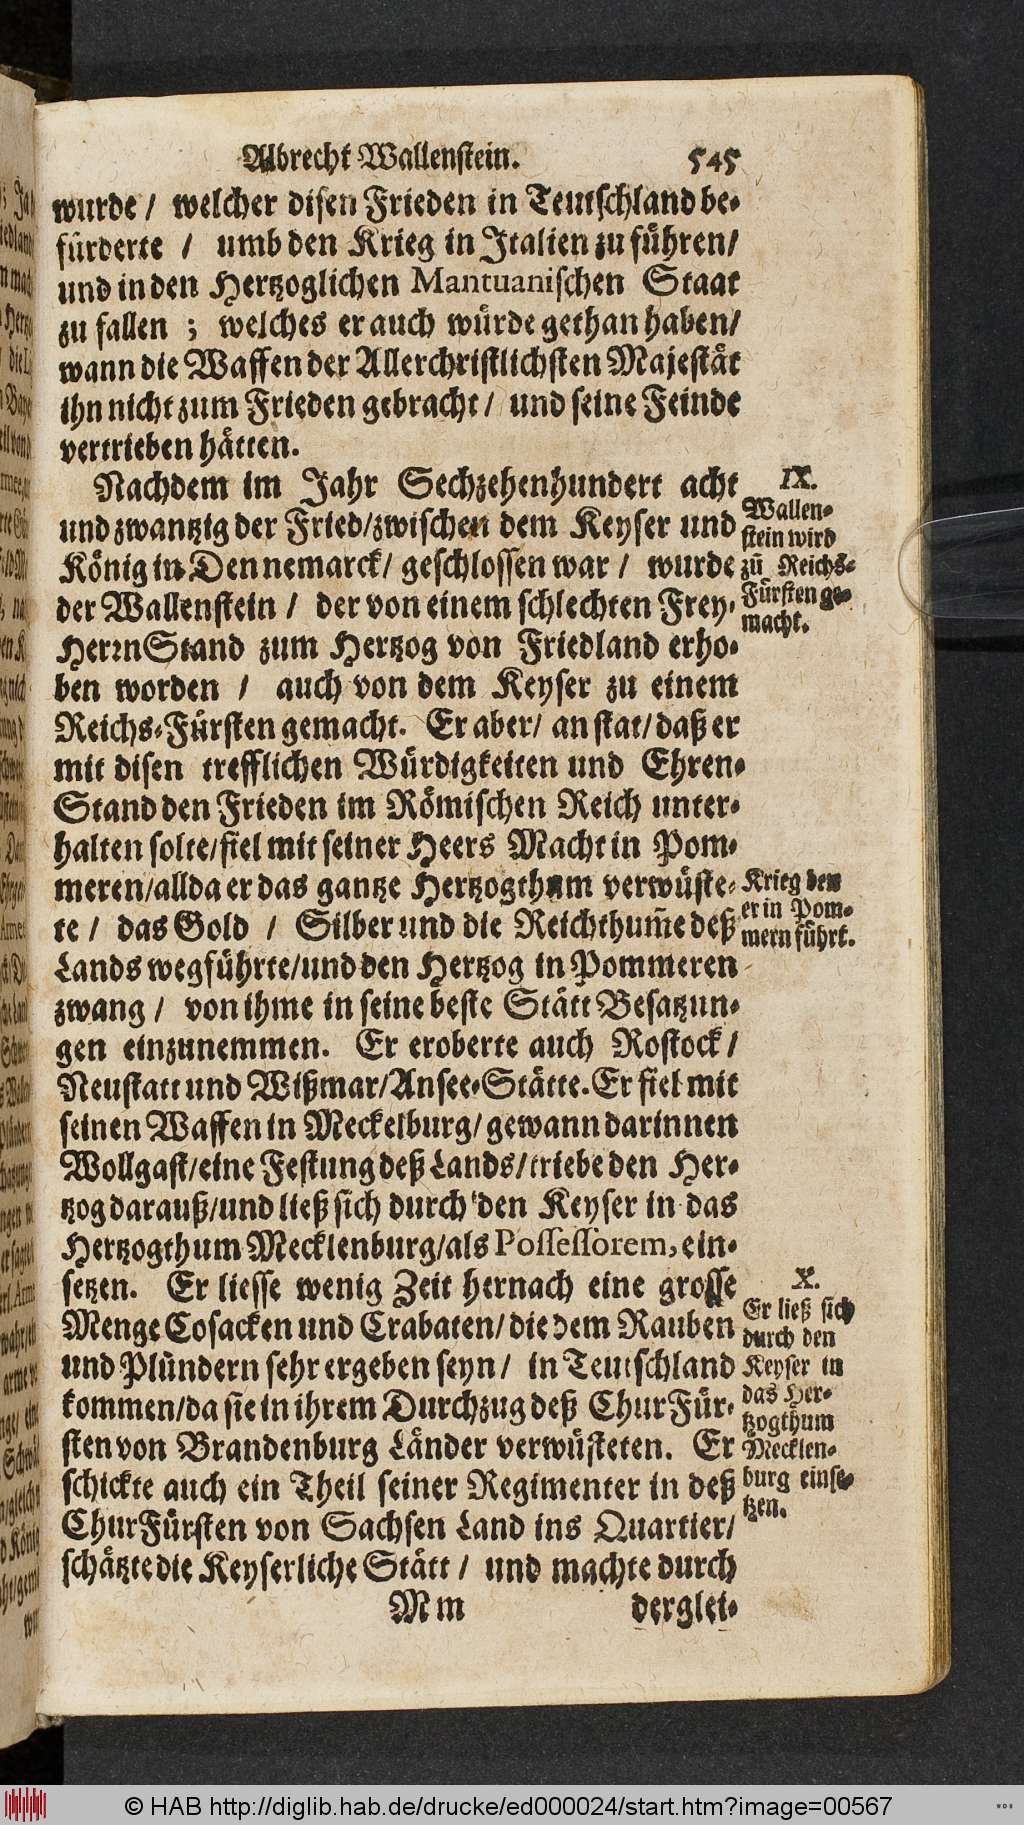 Albrecht Wallenstein. 545
wurde / welcher disen Frieden in Teutschland be-
fürderte / umb den Krieg in Italien zu führen/
und in den Hertzoglichen Mantuanischen Staat
zu fallen ; welches er auch würde gethan haben/
wann die Waffen der Allerchristlichsten Majestät
ihn nicht zum Frieden gebracht / und seine Feinde
vertrieben hätten.
Nachdem im Jahr Sechzehenhundert acht
und zwantzig der Fried/zwischen dem Keyser und
König in Dennemarck/ geschlossen war / wurde
der Wallenstein / der von einem schlechten Frey-
Herrn Stand zum Hertzog von Friedland erho-
ben worden / auch von dem Keyser zu einem
Reichs-Fürsten gemacht. Er aber/ an stat/ daß er
mit disen trefflichen Würdigkeiten und Ehren-
Stand den Frieden im Römischen Reich unter-
halten solte/fiel mit seiner Heers Macht in Pom-
meren/allda er das gantze Hertzogthum verwüste-
te / das Gold / Silber und die Reichthum̃e deß
Lands wegführte/und den Hertzog in Pommeren
zwang / von ihme in seine beste Stätt Besatzun-
gen einzunemmen. Er eroberte auch Rostock /
Neustatt und Wißmar/Ansee-Stätte. Er fiel mit
seinen Waffen in Meckelburg/ gewann darinnen
Wollgast/eine Festung deß Lands/triebe den Her-
tzog darauß/und ließ sich durch den Keyser in das
Hertzogthum Mecklenburg/als Possessorem, ein-
setzen. Er liesse wenig Zeit hernach eine grosse
Menge Cosacken und Crabaten/ die dem Rauben
und Plündern sehr ergeben seyn / in Teutschland
kommen/da sie in ihrem Durchzug deß ChurFür-
sten von Brandenburg Länder verwüsteten. Er
schickte auch ein Theil seiner Regimenter in deß
ChurFürsten von Sachsen Land ins Quartier/
schätzte die Keyserliche Stätt / und machte durch
Mm derglei-
IX.
Wallen-
stein wird
zu Reichs-
Fürsten ge-
macht.
Krieg den
er in Pom-
mern führt.
X.
Er ließ sich
durch den
Keyser in
das Her-
tzogthum
Mecklen-
burg einse-
tzen.
© HAB http://diglib.hab.de/drucke/ed000024/start.htm?image=00567